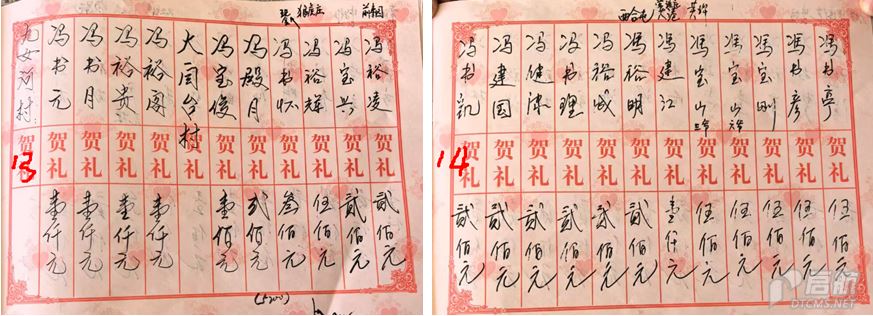 前韩
九女河村:
贺礼
冯书元
贺礼
壹仟元
冯书月
贺礼
壹仟元
冯裕贵
贺礼
壹仟元
冯裕阁
贺礼
壹仟元
大闫台村
贺礼
冯宝俊
贺礼
壹佰元
冯殿月
贺礼
贰佰元
冯书怀
贺礼
叁佰元
冯裕辉
贺礼
伍佰元
冯宝兴
贺礼
贰佰元
冯裕凌
贺礼
贰佰元
13
冯书凯
贺礼
贰佰元
冯建国
贺礼
贰佰元
冯健涛
贺礼
贰佰元
冯书理
贺礼
贰佰元
冯裕成
贺礼
贰佰元
冯裕明
贺礼
贰佰元
冯建江
贺礼
壹仟元
冯宝山
贺礼
伍佰元
冯宝山
贺礼
伍佰元
冯宝刚
贺礼
伍佰元
冯书彦
贺礼
伍佰元
冯书亭
贺礼
伍佰元
14
启航
DTCMS.NET